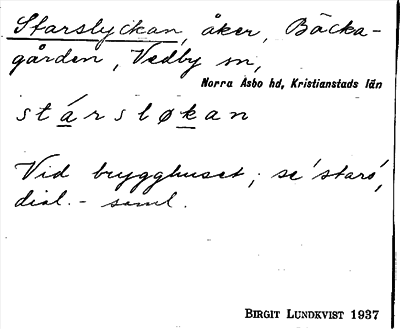 Starslyckan, åker, Bäcka-
gården, Vedby sn,
Norra Åsbo hd, Kristianstads län
stársløkan
Vid brygghuset; se 'stars',
dial. - saml.
BIRGIT LUNDKVIST 1937